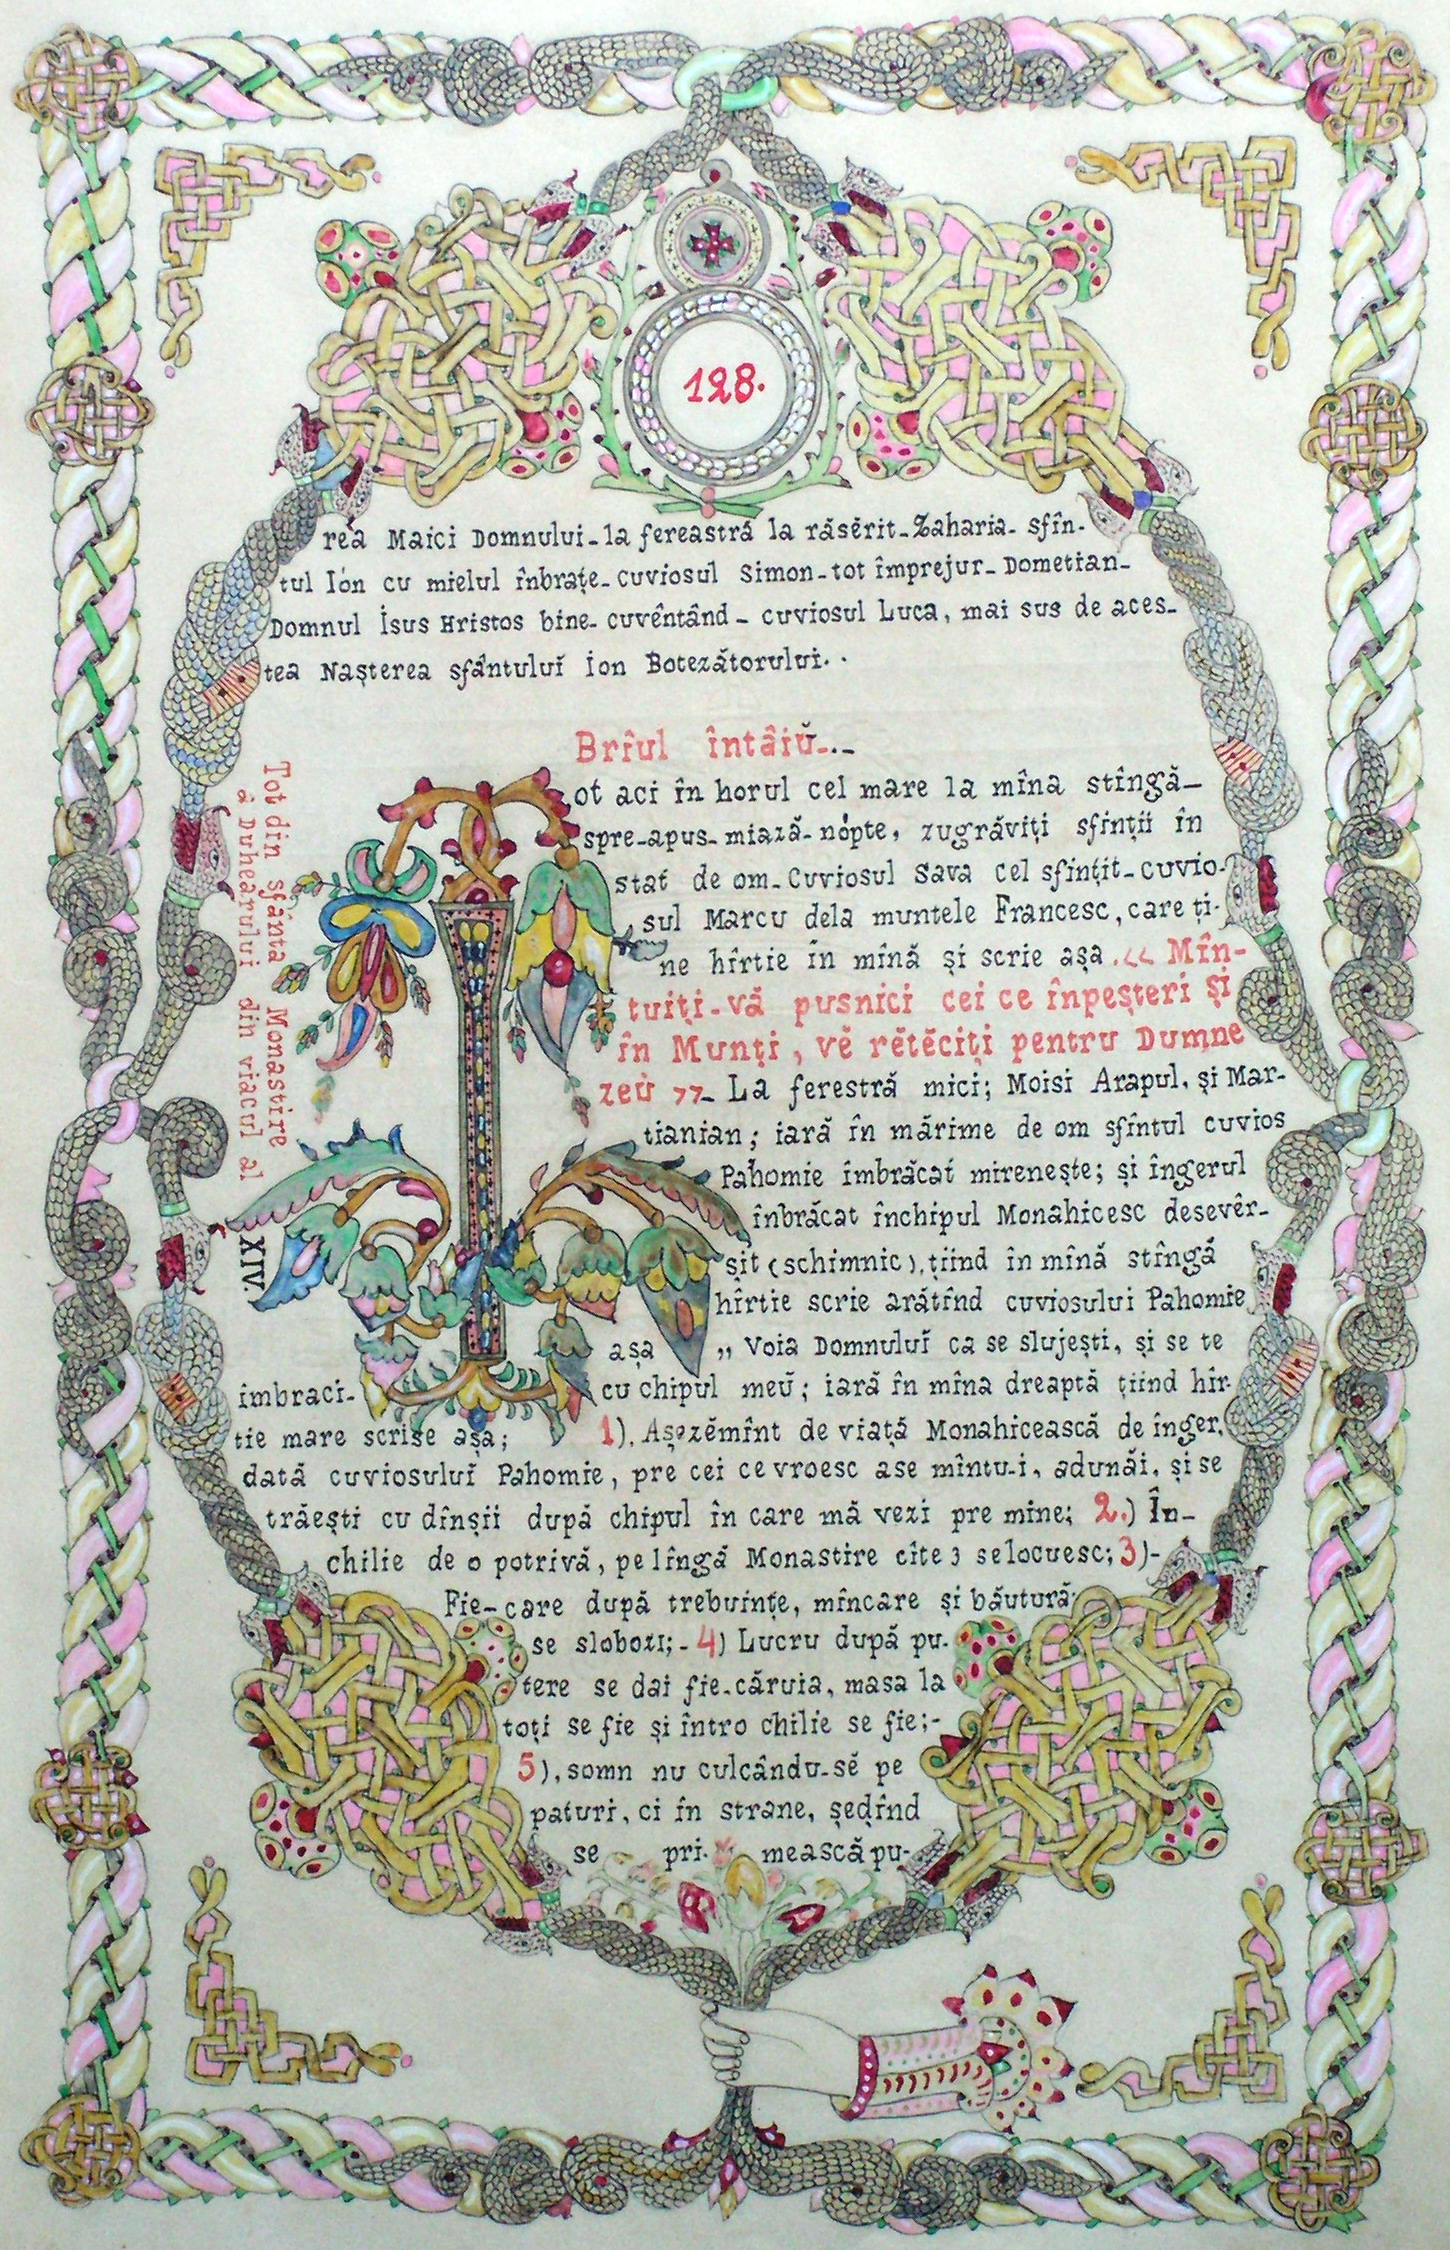 128.
rea Maici Domnului-la fereastră la răsĕrit-Zaharia-sfîn-
tul Ion cu mielul înbrațe-cuviosul Simon-tot împrejur-Dometian-
Domnul Isus Hristos bine-cuvêntând-cuviosul Luca, mai sus de aces-
tea Nașterea sfântuluĭ Ion Botezătorului..
Brîul întâiŭ...-
ot aci în horul cel mare la mîna stîngă-
spre-apus-miază-nópte, zugrăviți sfinții în
stat de om-Cuviosul Sava cel sfințit-cuvio-
sul Marcu dela muntele Francesc, care ți-
ne hîrtie în mînă și scrie așa.<< Mîn-
tuiți-vă pusnici cei ce înpeșteri și
în Munți, vĕ rĕtĕciți pentru Dumne
zeŭ >>- La ferestră mici; Moisi Arapul, și Mar-
tianian; iară în mărime de om sfîntul cuvios
Pahomie îmbrăcat mirenește; și îngerul
înbrăcat închipul Monahicesc desevêr-
șit (schimnic), țiind în mînă stîngă
hîrtie scrie arătînd cuviosului Pahomie
așa „ Voia Domnuluĭ ca se slujești, și se te
îmbraci- cu chipul meŭ; iară în mîna dreaptă țiind hîr-
tie mare scrise așa; 1), Așezĕmînt de viață Monahicească de înger,
dată cuviosuluĭ Pahomie, pre cei ce vroesc ase mîntu-i, adunăi, și se
trăești cu dînșii după chipul în care mă vezi pre mine; 2.) În-
chilie de o potrivă, pe lîngă Monastire cîte 3 selocuesc; 3)-
Fie-care după trebuințe, mîncare și băutură
se slobozi;- 4) Lucru după pu-
tere se dai fie-căruia, masa la
toți se fie și întro chilie se fie;-
5), somn nu culcându-sĕ pe
paturi, ci în strane, ședînd
se pri- mească pu-
Tot din sfânta Monastire
a Duhearului din viacul al
XIV.